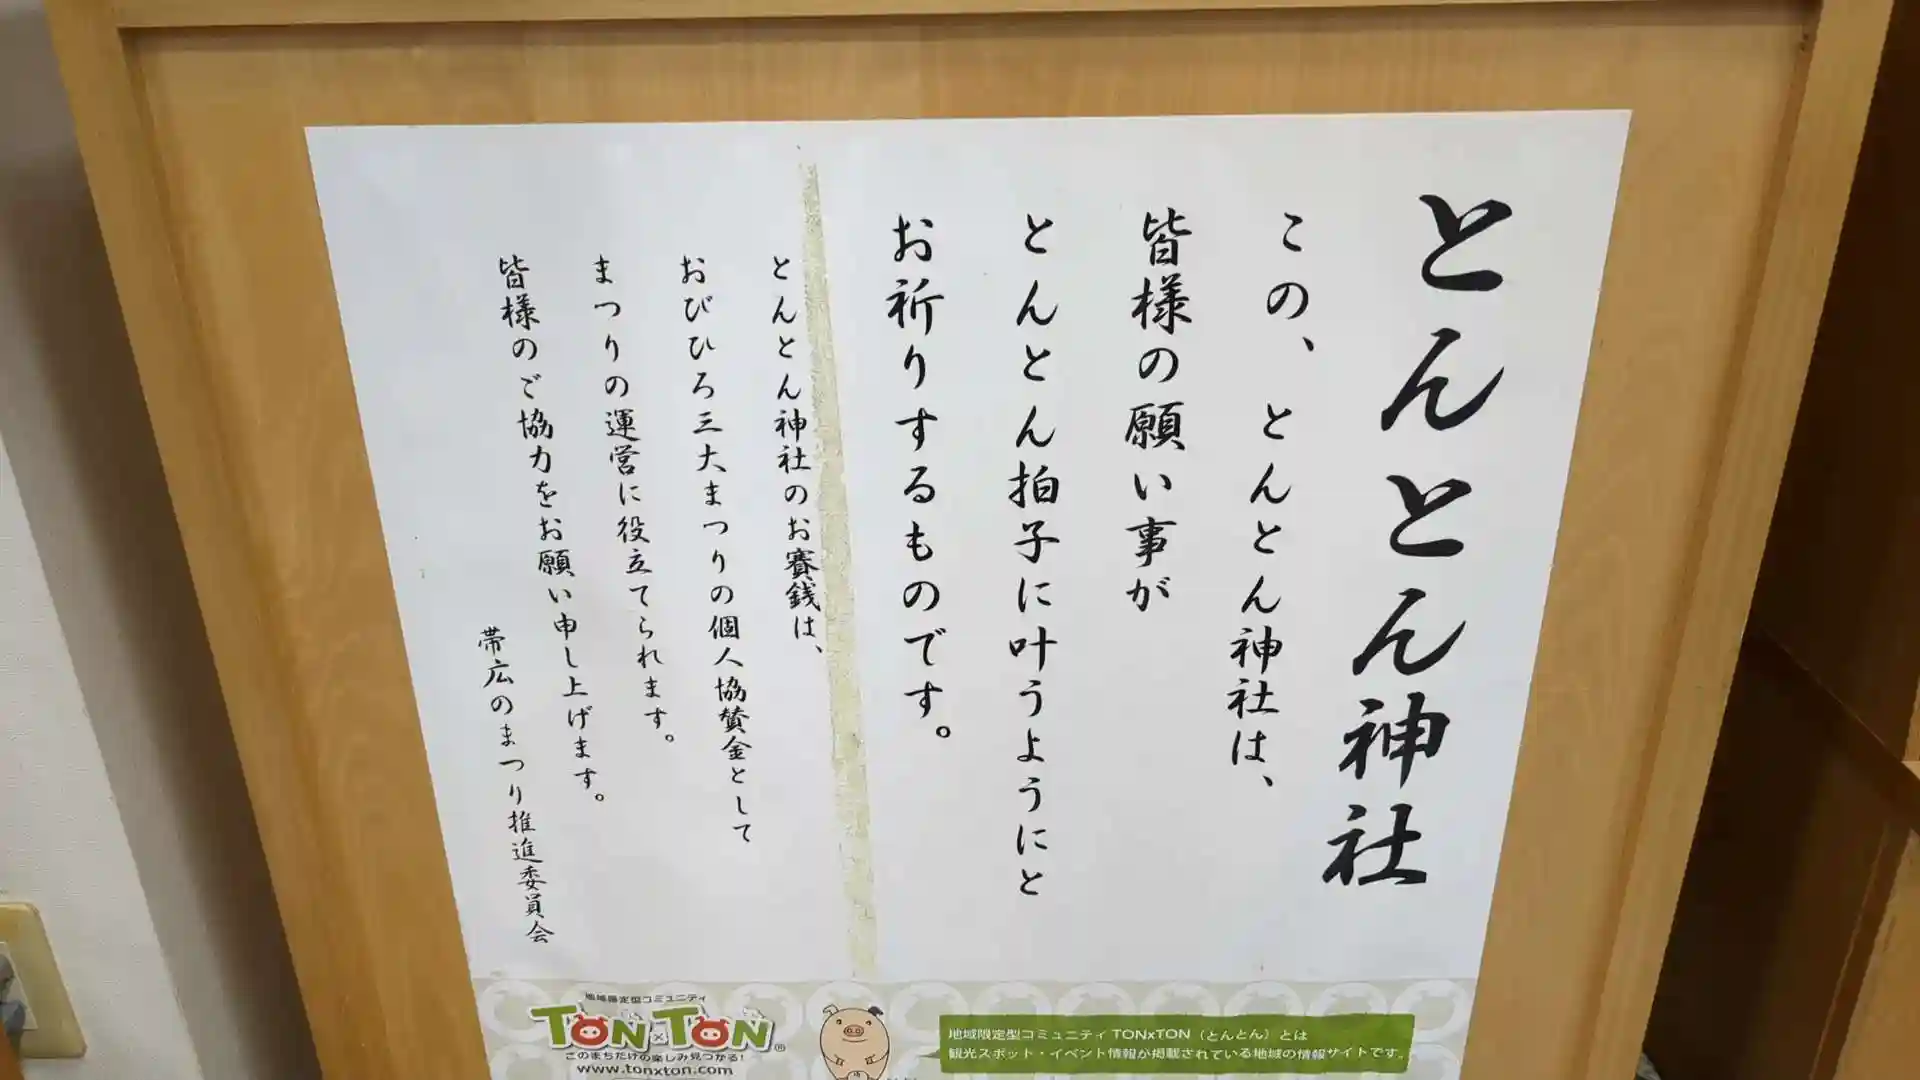 とんとん神社
この、とんとん神社は、
皆様の願い事が
とんとん拍子に叶うようにと
お祈りするものです。
とんとん神社のお賽銭は、
おびひろ三大まつりの個人協賛金として
まつりの運営に役立てられます。
皆様のご協力をお願い申し上げます。
帯広のまつり推進委員会
地域限定型コミュニティ
TON×TON®
このまちだけの楽しみ見つかる!
www.tonxton.com
地域限定型コミュニティ TONxTON（とんとん）とは
観光スポット・イベント情報が掲載されている地域の情報サイトです。